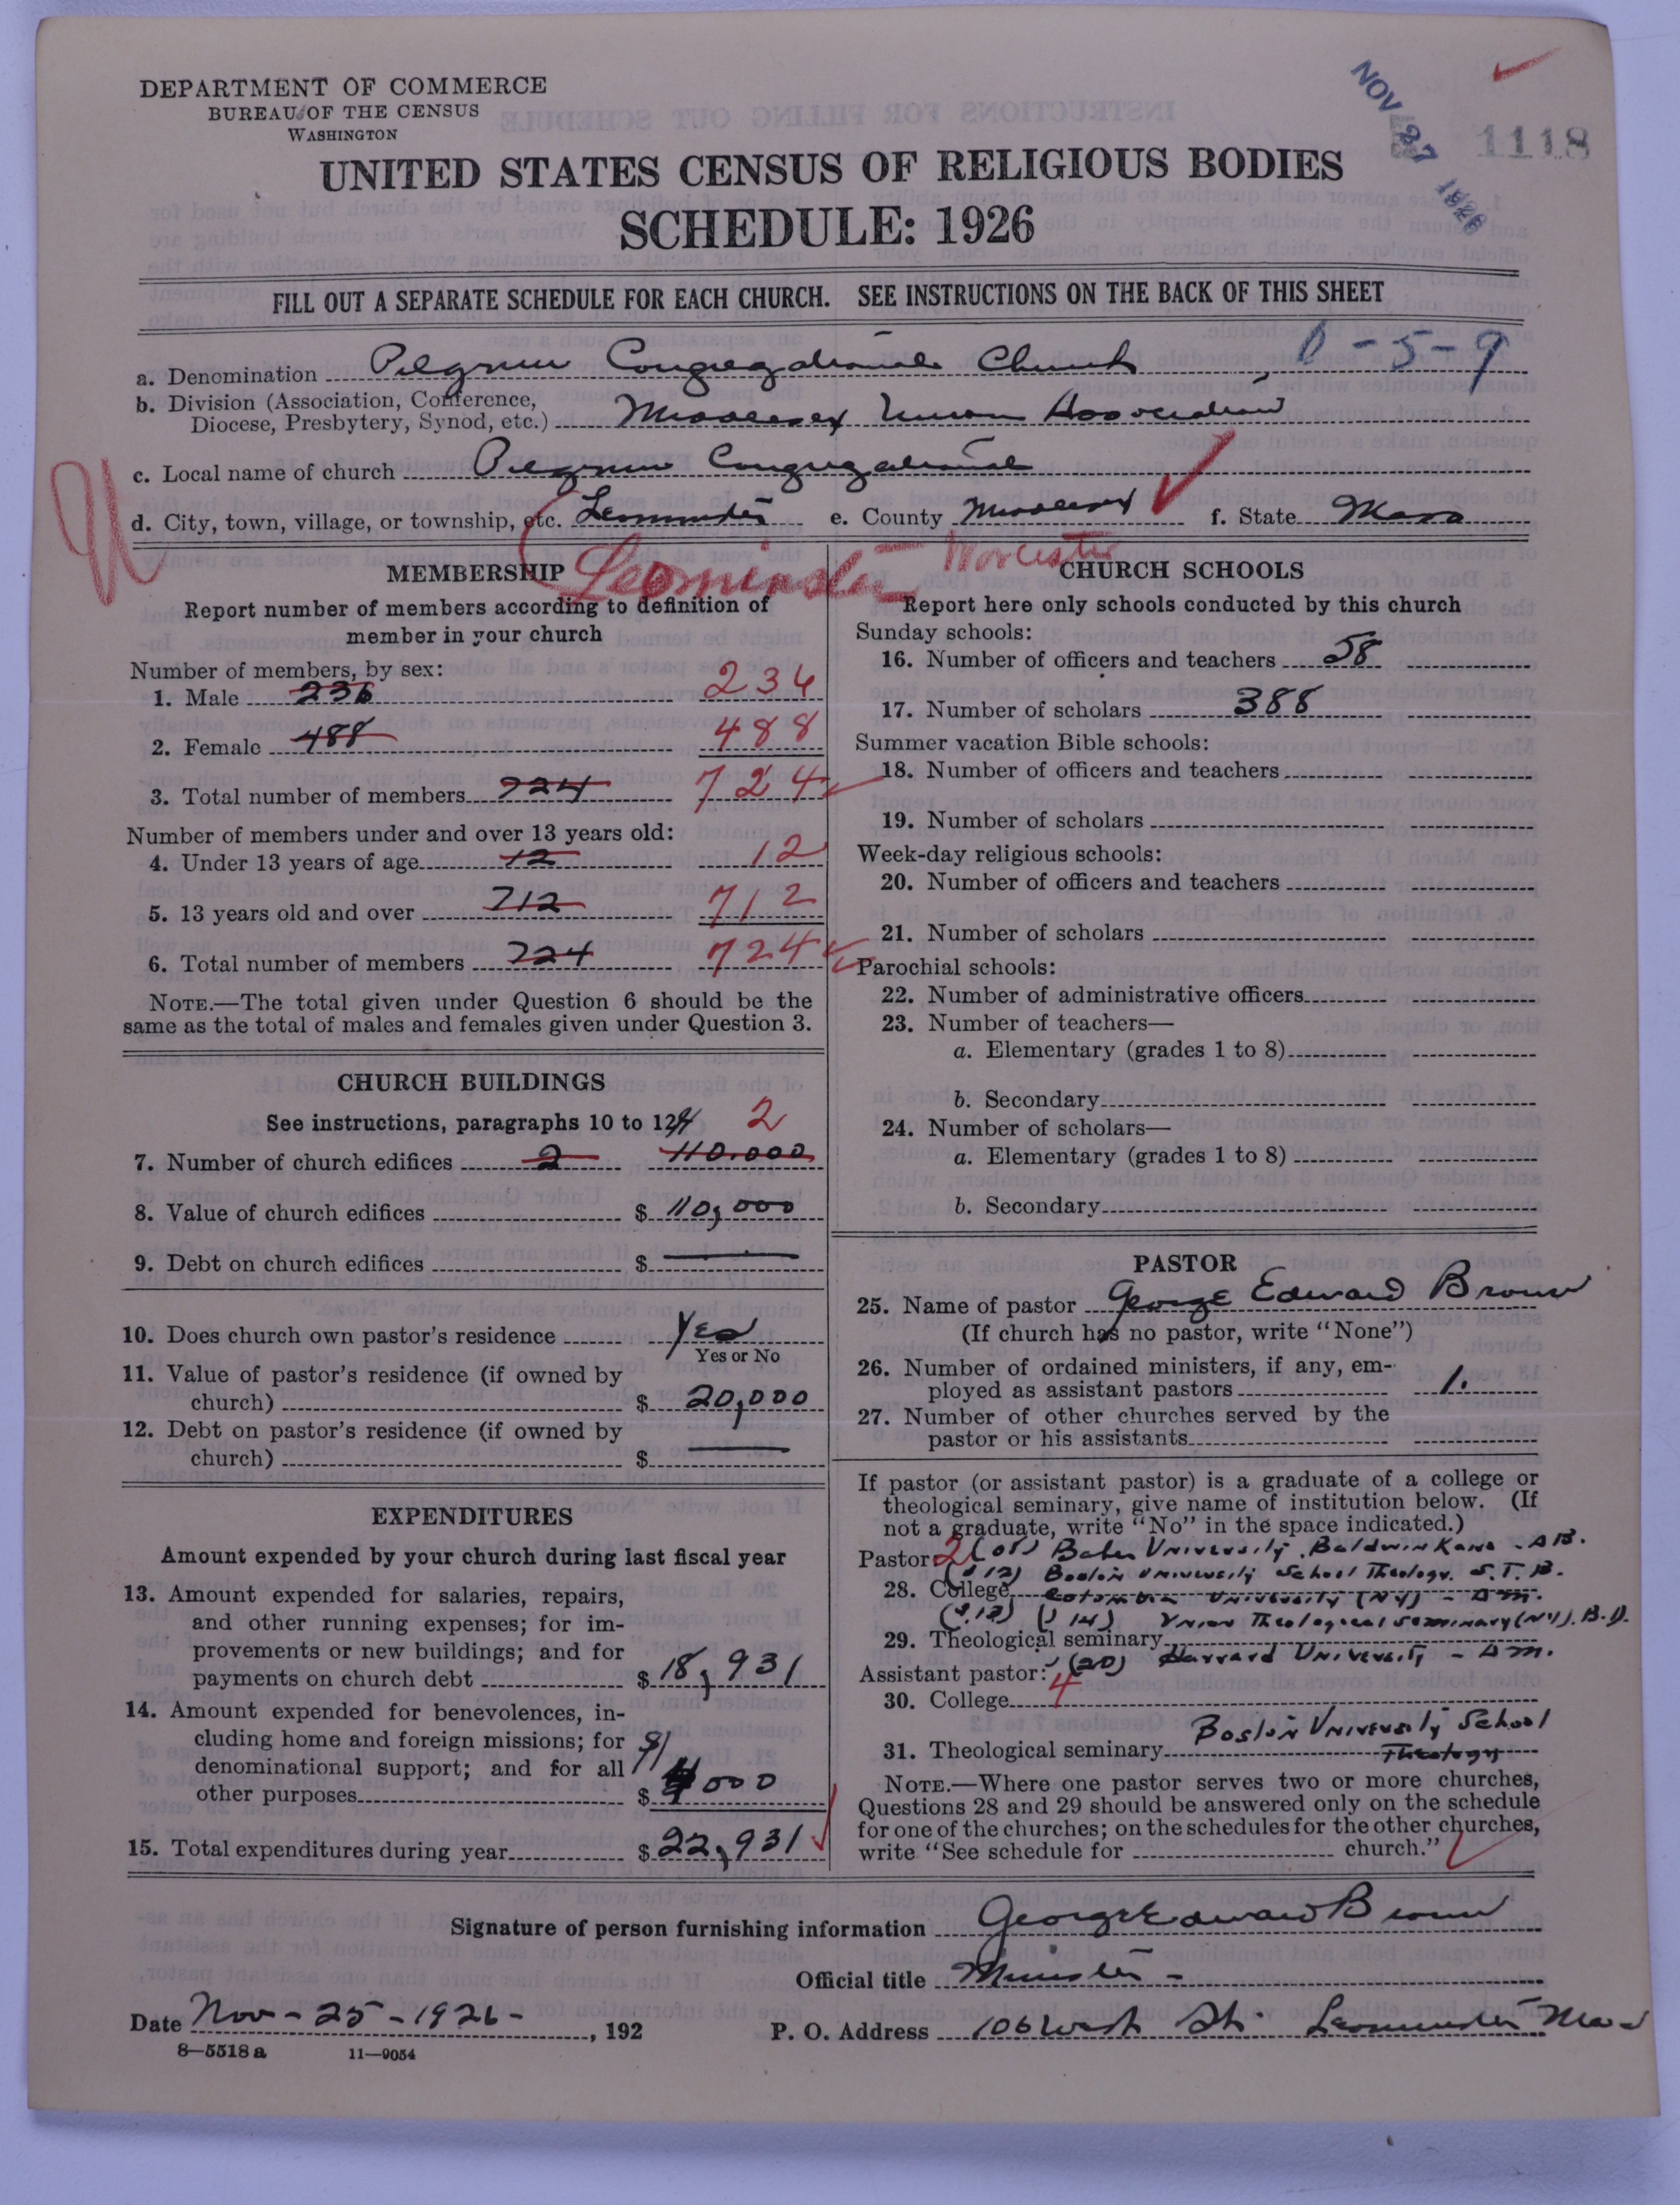 DEPARTMENT OF COMMERCE
BUREAU OF THE CENSUS
WASHINGTON
NOV 27 1926
1118
UNITED STATES CENSUS OF RELIGIOUS BODIES
SCHEDULE: 1926
FILL OUT A SEPARATE SCHEDULE FOR EACH CHURCH. SEE INSTRUCTIONS ON THE BACK OF THIS SHEET
a. Denomination Pilgrim Congregational Church, 0-5-9
b. Division (Association, Conference,
Diocese, Presbytery, Synod, etc.) Middlesex Union Association
c. Local name of church Pilgrim Congregational
d. City, town, village, or township, etc. Leominster e. County Middlesex f. State Mass
Leominster Worcester
MEMBERSHIP
Report number of members according to definition of
member in your church
Number of members, by sex:
1. Male 236 236
2. Female 488 488
3. Total number of members 724 724
Number of members under and over 13 years old:
4. Under 13 years of age 12 12
5. 13 years old and over 712 712
6. Total number of members 724 724
NOTE.—The total given under Question 6 should be the
same as the total of males and females given under Question 3.
CHURCH BUILDINGS
See instructions, paragraphs 10 to 12 2
7. Number of church edifices 2 110.000
8. Value of church edifices $ 110,000
9. Debt on church edifices $ —
10. Does church own pastor's residence Yes
Yes or No
11. Value of pastor's residence (if owned by
church) $ 20,000
12. Debt on pastor's residence (if owned by
church) $ —
EXPENDITURES
Amount expended by your church during last fiscal year
13. Amount expended for salaries, repairs,
and other running expenses; for im-
provements or new buildings; and for
payments on church debt $ 18,931
14. Amount expended for benevolences, in-
cluding home and foreign missions; for
denominational support; and for all
other purposes $ 4000
15. Total expenditures during year $ 22,931
CHURCH SCHOOLS
Report here only schools conducted by this church
Sunday schools:
16. Number of officers and teachers 58
17. Number of scholars 388
Summer vacation Bible schools:
18. Number of officers and teachers
19. Number of scholars
Week-day religious schools:
20. Number of officers and teachers
21. Number of scholars
Parochial schools:
22. Number of administrative officers
23. Number of teachers—
a. Elementary (grades 1 to 8)
b. Secondary
24. Number of scholars—
a. Elementary (grades 1 to 8)
b. Secondary
PASTOR
25. Name of pastor George Edward Brown
(If church has no pastor, write "None")
26. Number of ordained ministers, if any, em-
ployed as assistant pastors 1.
27. Number of other churches served by the
pastor or his assistants
If pastor (or assistant pastor) is a graduate of a college or
theological seminary, give name of institution below. (If
not a graduate, write "No" in the space indicated.)
Pastor: 2 (08) Baker University, Baldwin Kans - A B.
('12) Boston University School Theology. S. T. B.
28. College Columbia University (NY) - A m.
('13) ('14) Union Theological Seminary (NY). B. D.
29. Theological seminary
Harvard University - A m.
Assistant pastor: (20)
30. College 4
Boston University School
31. Theological seminary Theology
NOTE.—Where one pastor serves two or more churches,
Questions 28 and 29 should be answered only on the schedule
for one of the churches; on the schedules for the other churches,
write "See schedule for church."
Signature of person furnishing information George Edward Brown
Official title Minister -
Date Nov - 25 - 1926 - , 192
P. O. Address 106 West St. Leominster Mass
8—5518 a 11—9054